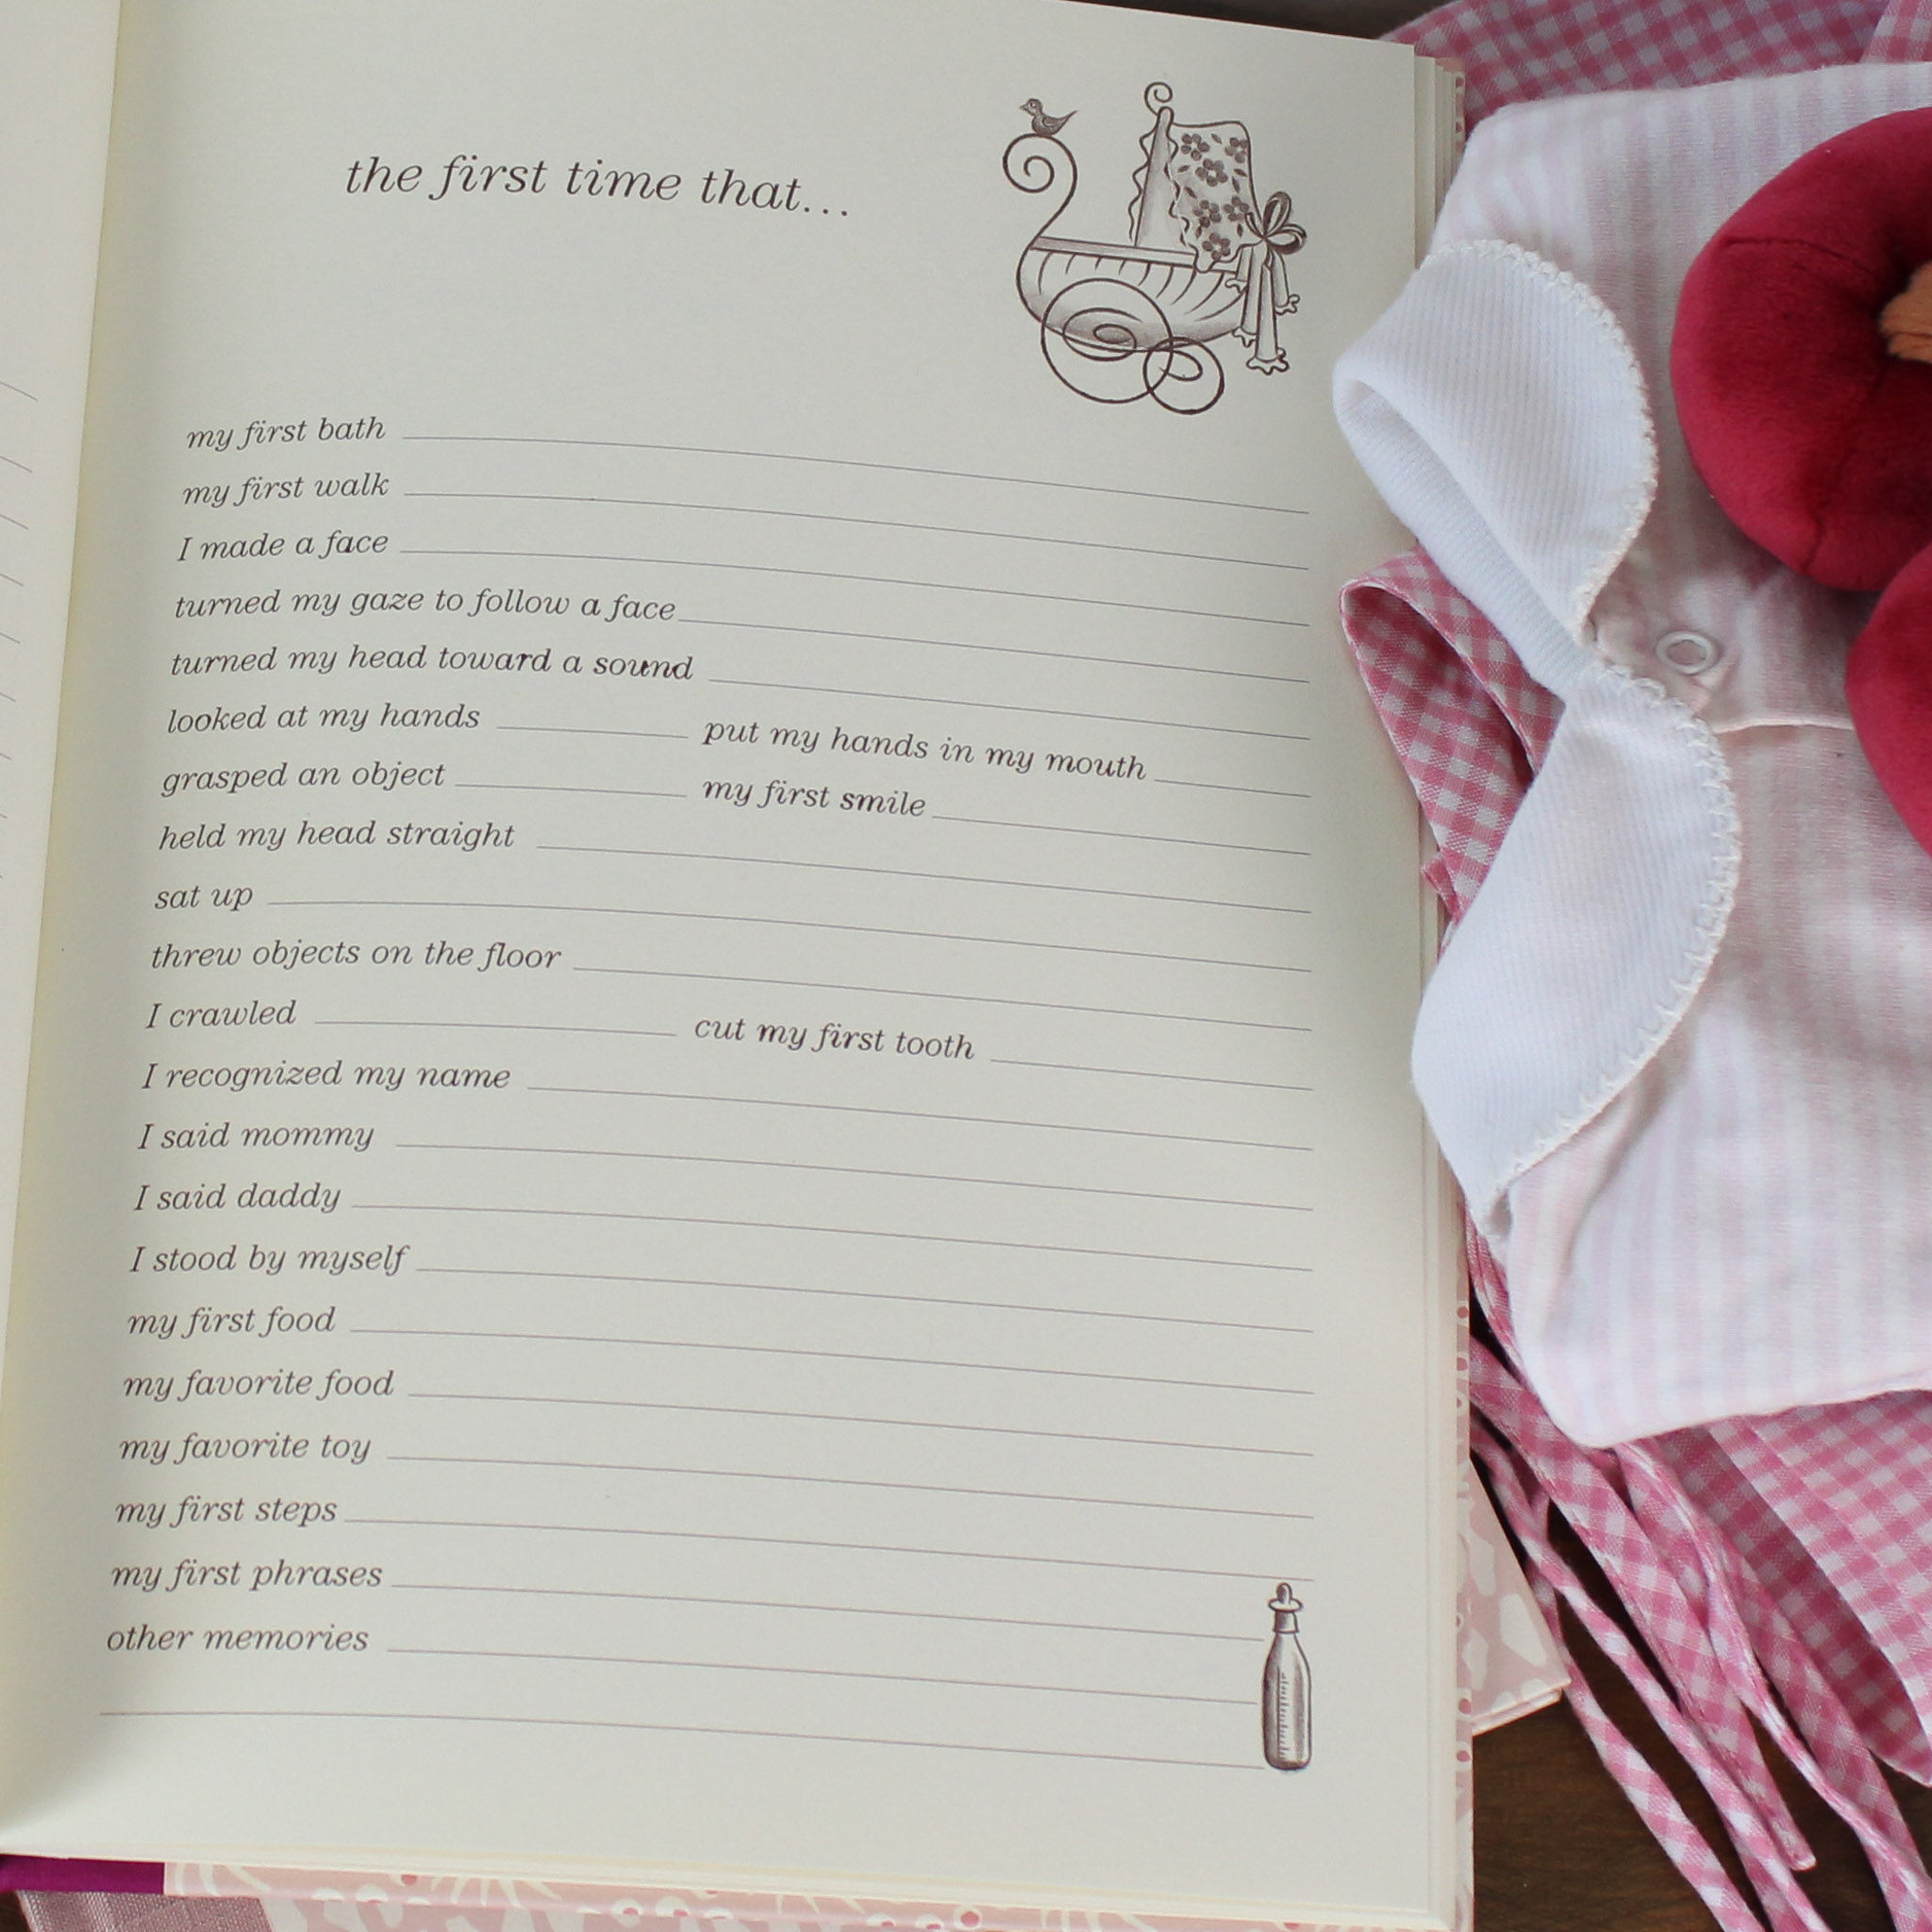 the first time that...
my first bath
my first walk
I made a face
turned my gaze to follow a face
turned my head toward a sound
looked at my hands put my hands in my mouth
grasped an object my first smile
held my head straight
sat up
threw objects on the floor
I crawled cut my first tooth
I recognized my name
I said mommy
I said daddy
I stood by myself
my first food
my favorite food
my favorite toy
my first steps
my first phrases
other memories